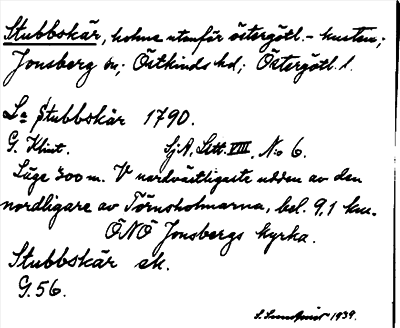 Stubbskär, holme utanför östergötl.-kusten;
Jonsberg sn; Östkinds hd; Östergötl. l.
La Stubbskär 1790.
G. Klint. SjA, Litt. VIII, No 6.
Läge 300 m. V nordvästligaste udden av den
nordligare av Törnsholmarna, bel. 9,1 km.
ÖNÖ Jonsbergs kyrka.
Stubbskär ek.
G.56.
1939.